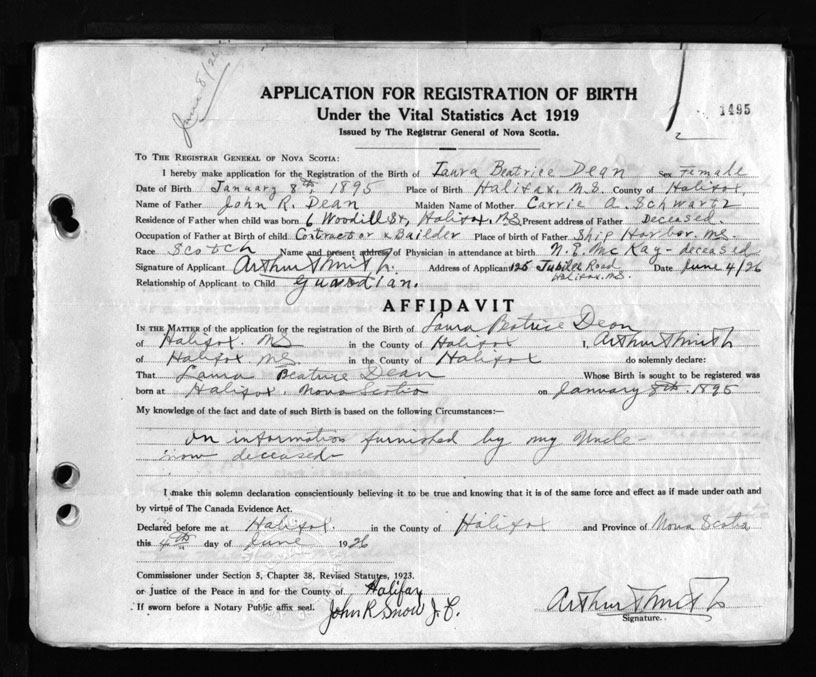 June 8/26
APPLICATION FOR REGISTRATION OF BIRTH
Under the Vital Statistics Act 1919
Issued by The Registrar General of Nova Scotia.
1495
2
TO THE REGISTRAR GENERAL OF NOVA SCOTIA:
I hereby make application for the Registration of the Birth of Laura Beatrice Dean Sex Female
Date of Birth January 8th, 1895 Place of Birth Halifax. N.S. County of Halifax,
Name of Father John R. Dean Maiden Name of Mother Carrie A. Schwartz
Residence of Father when child was born 6 Woodill St, Halifax. N.S. Present address of Father Deceased.
Occupation of Father at Birth of child Contractor & Bailder Place of birth of Father Ship Harbor. N.S.
Race Scotch Name and present address of Physician in attendance at birth N. E. McKay - deceased
Signature of Applicant Arthur Smith. Address of Applicant 125 Jubilee Road Date June 4/26
Halifax. N.S.
Relationship of Applicant to Child Guardian.
AFFIDAVIT
IN THE MATTER of the application for the registration of the Birth of Laura Beatrice Dean
of Halifax. N.S in the County of Halifax I, Arthur Smith
of Halifax N.S. in the County of Halifax do solemnly declare:
That Laura Beatrice Dean Whose Birth is sought to be registered was
born at Halifax. Nova Scotia on January 8th. 1895
My knowledge of the fact and date of such Birth is based on the following Circumstances:—
On information furnished by my Uncle-
now deceased-
I make this solemn declaration conscientiously believing it to be true and knowing that it is of the same force and effect as if made under oath and
by virtue of The Canada Evidence Act.
Declared before me at Halifax. in the County of Halifax and Province of Nova Scotia
this 4th day of June 1926
Commissioner under Section 5, Chapter 38, Revised Statutes, 1923.
or Justice of the Peace in and for the County of Halifax
If sworn before a Notary Public affix seal. John R Snow J. P.
Arthur Smith
Signature.